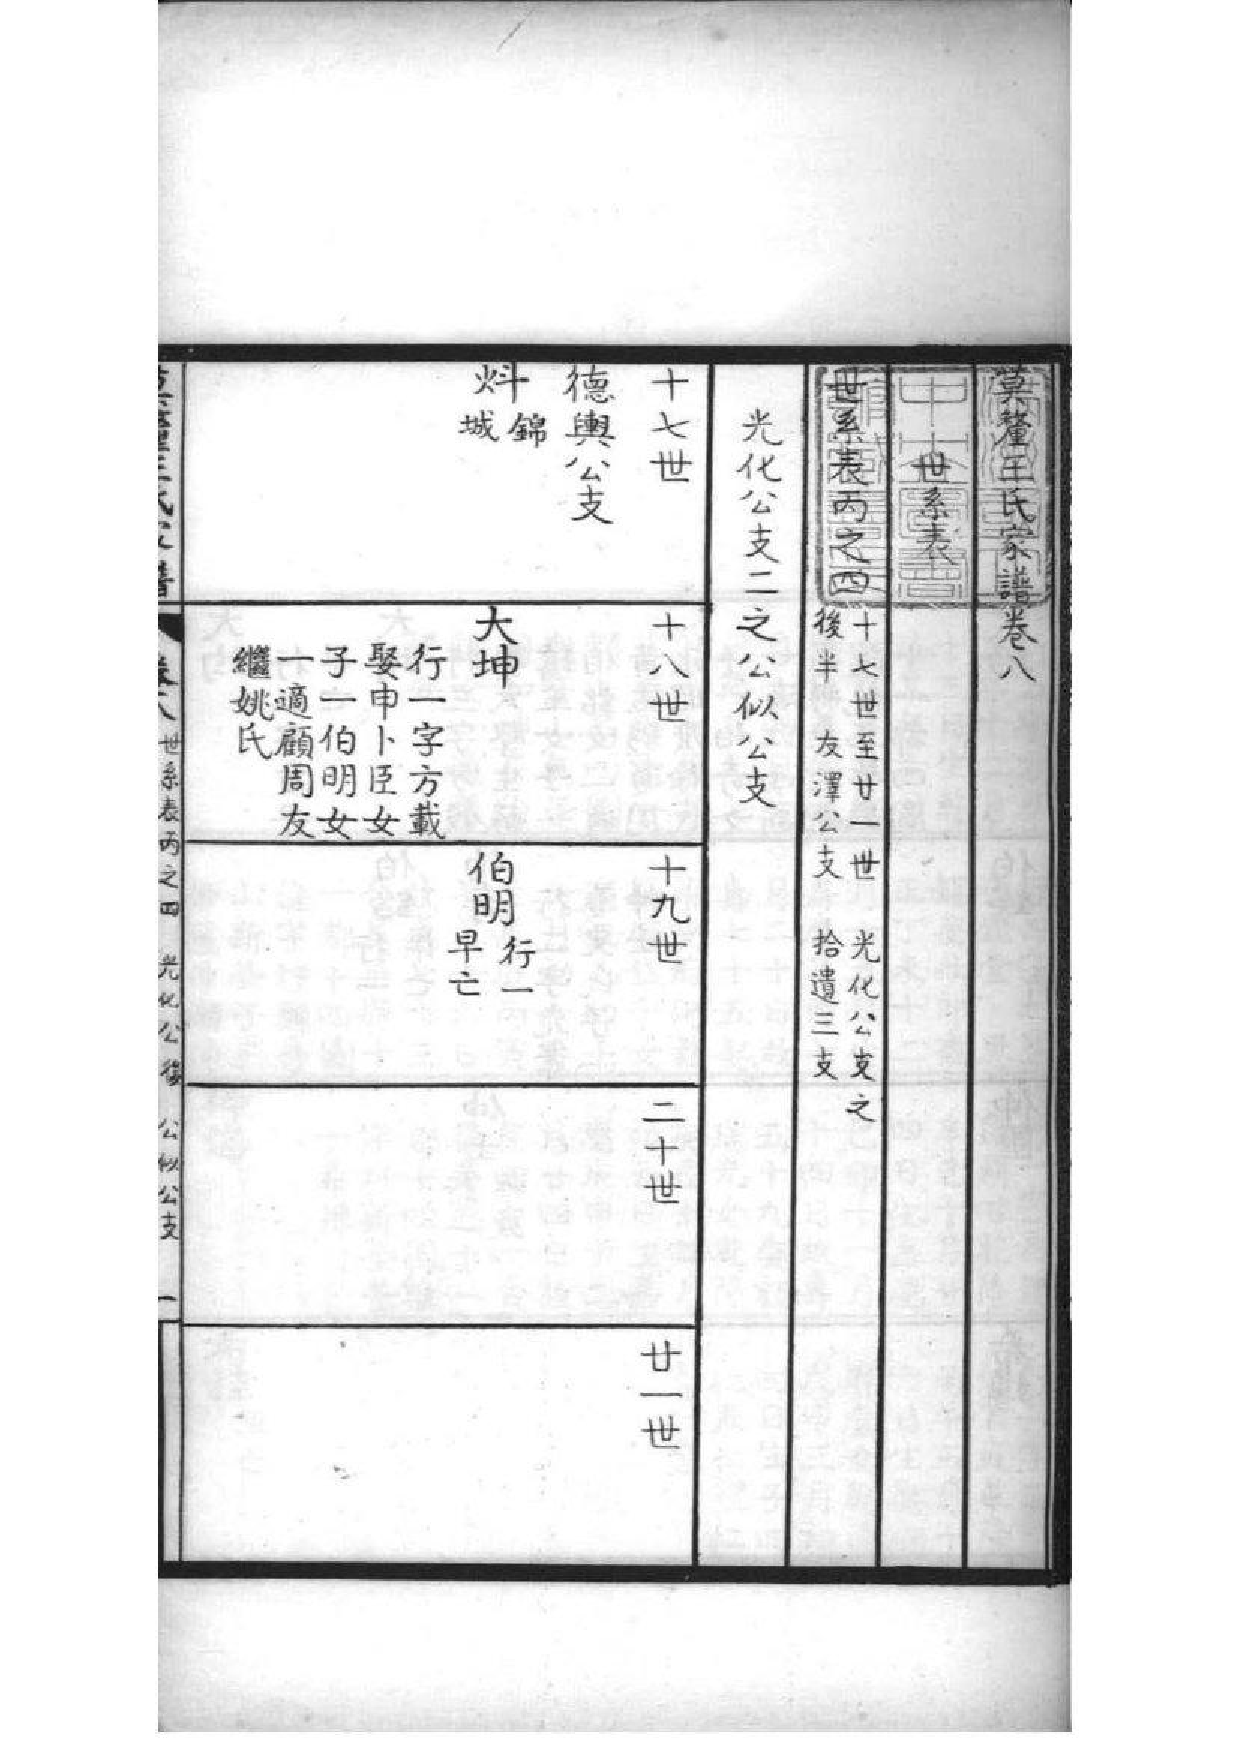 莫釐王氏家譜卷八
世系表
世系表丙之四
十七世至廿一世 光化公支之
後半 友澤公支 拾遺三支
光化公支二之公似公支
十七世
德輿公支
炓
錦
城
十八世
大坤
行一字方載
娶申卜臣女
子一伯明女
一適顧周友
繼姚氏
十九世
伯明
行一
早亡
二十世
廿一世
莫釐王氏家譜 卷八 世系表丙之四 光化公後 公似公支 一